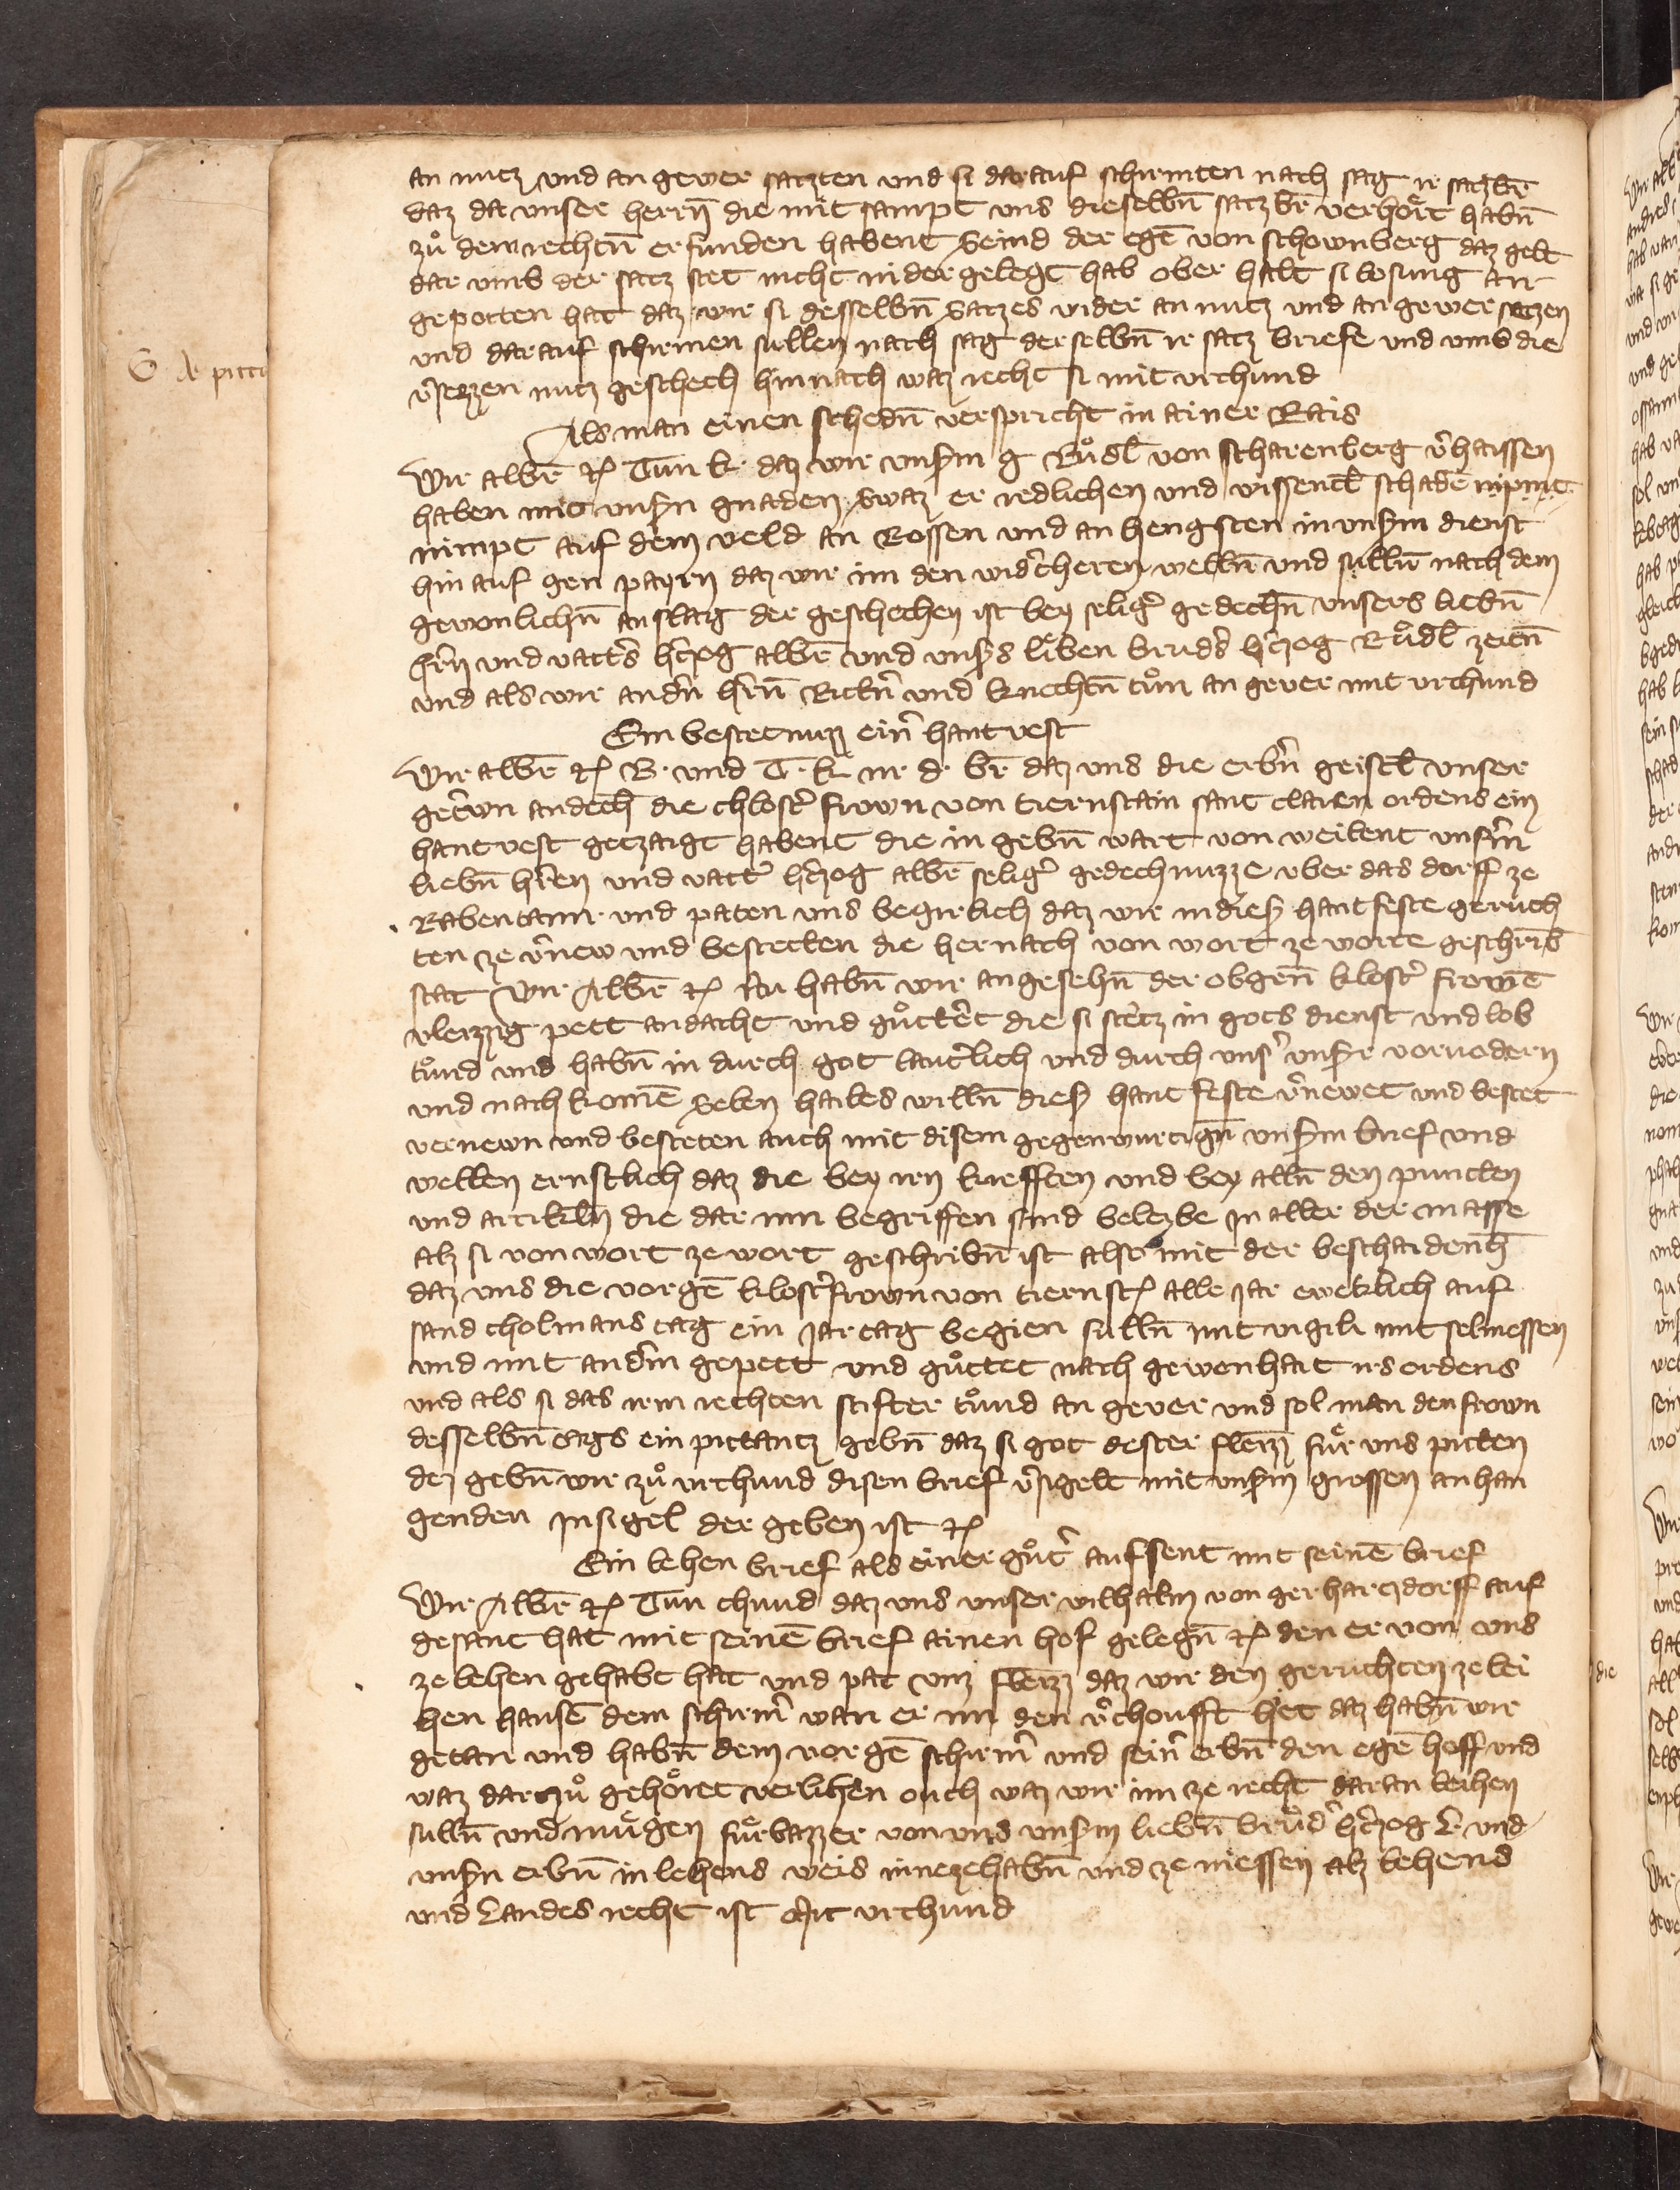 an nucz vnd an gewer saczten vnd si darauf schirmten nach sag ir saczbr̄
daz da vnser herrn̄ die mit sampt vns dieselbn̄ saczbr̄ verhoͤrt habn̄
zuͦ dem rechtn̄ erfunden habent Seind der egen̄ von schownberg daz gelt
dar vmb der sacz stet nicht nider gelegt hab ober halt si losung an
gepotten hat daz wir si desselbn̄ Saczes wider an nucz vnd an gewer seczen
vnd darauf schirmen sullen nach sag derselbn̄ ir sacz briefe vnd vmb die
v̾sezzen nucz geschech hinnach waz recht si mit vrchund
Als man einen schedn̄ verspricht in ainer Rais
Wir albr̄ ꝛc Tun k. daz wir vnserm g Ruͦdl̄ von scharenberg v̾haissen
haben mit vnsern gnaden Swaz er redlichen vnd wissentl̄ schadē nipmt
nimpt auf dem veld an Rossen vnd an hengsten in vnserm dienst
hin auf gen payrn daz wir im den wider̄cheren wellen̄ vnd sullen̄ nach dem
gewonlichn̄ anslag der geschechen ist bey selig̾ gedechn̄ vnsers liebn̄
hr̄n vnd vatt̾s hr̄czog albr̄ vnd vnsers lieben brud̾s hr̄czog Ruͦdl̄ zeitn̄
vnd als wir andn̄ hr̄n Rittn̾ vnd knechtn̄ tuͦn an gever mit vrchund
Ein bestetnuzz ein̾ hantvest
Wir albr̄ ꝛc B. vnd T. k. m. d. br̄ daz vns die erbn̾ geistl̄ vnser
getrewn andech̄ die chlost̾ frown von tiernstain sant claren ordens ein
hantvest geczaigt habent die in gebn̄ wart von weilent vnserm
liebn̄ hr̄ren vnd vatt̾ hr̄czog albr̄ selig̾ gedechnuzze vber das dorff ze
Rabentann vnd paten vns begirlich daz wir in dies̾ hantfeste geruch
ten ze v̾new vnd bestetten die hernach von wort ze worte geschribn̄
stat Wir Albr̄ ꝛc Nu habn̄ wir angesehn̄ der obgen̄ klost̾ frowē
vleizzig pett andacht vnd guͦttet die si stetz in gots dienst vnd lob
tuͦnd vnd habn̄ in durch got laut̾lich vnd durch vns̾ vnserr voruodern
vnd nachkomē Selen hailes willn̄ dies̾ hantfeste v̾newet vnd bestet
vernewn vnd besteten auch mit disem gegenwurtign̄ vnserm brief vnd
wellen ernstlich daz die bey irn krefften vnd bey alln̄ den puncten
vnd artikeln̄ die dar inn begriffen sind beleybe In aller der masse
alz si von wort ze wort geschribn̄ ist also mit der beschaidenh̄
daz vns die vorgen̄ klost̾frown von tiernst̾ alle Jar eweklich auf
sand cholmans tag ein Jartag begien sulln̄ mit vigili mit selmessen
vnd mit anderm gepett vnd guͦttet nach gewonhait irs ordens
vnd als si das irm rechten stifter tuͦnd an gever vnd sol man den frown
desselbn̄ tags ein pittancz gebn̄ daz si got dester fleizz̾ fuͤr vns pitten
dez gebn̄ wir zuͦ vrchund disen brief v̾sigelt mit vnserm grossen anhan
genden Insigel der geben ist ꝛc
Ein lehen brief als einer guͦt̾ aufsent mit seinē brief
Wir Albr̄ ꝛc Tun chund daz vns vnser wilhalm von gerharczdorff auf
gesant hat mit seinē brief ainen hof gelegn̄ ꝛc den er von vns
ze lehen gehabt hat vnd pat vnz fleizz̾ daz wir den geruchten ze lei
hen hansē dem schirm̾ wan er im den v̾choufft het daz habn̄ wir
getan vnd habn̄ dem vorgen̄ schirm̾ vnd sein̾ erbn̄ den egen̄ hoff vnd
waz darczuͦ gehoͤret verlihen ouch waz wir im ze recht daran leihen
sulln̄ vnd muͤgen fuͤrbazzer von vns vnserm liebn̄ bruͦd̾ hr̄czog L. vnd
vnsern erbn̄ in lehens weis innezehabn̄ vnd ze niessen alz lehens
vnd Landes recht ist Mit vrchund